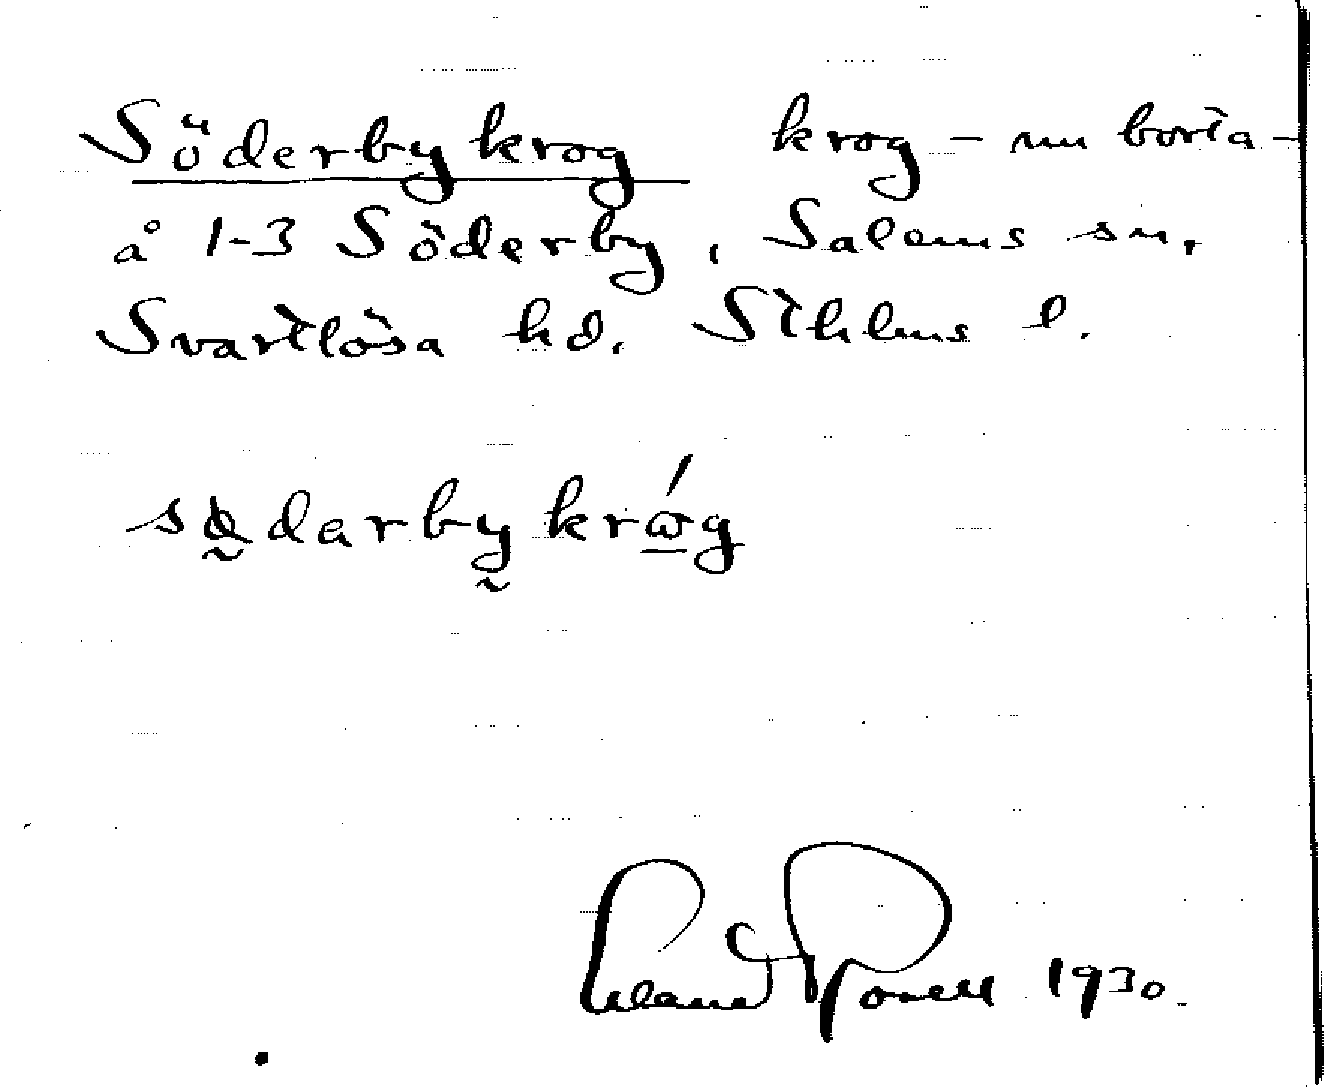 Söderby krog krog – nu borta –
å 1-3 Söderby, Salems sn,
Svartlösa hd, Sthlms l.
sødarby krǫ́g
1930.